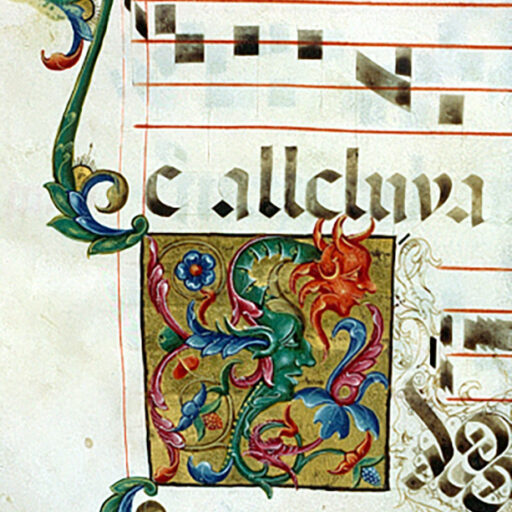 e alleluya